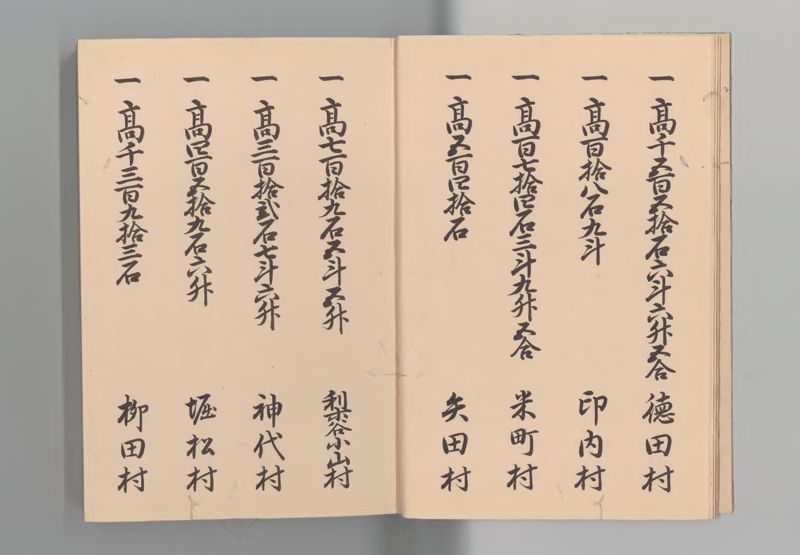 一高千五百五拾石六斗六升五合 徳田村
一高百拾八石九斗 印内村
一高百七拾四石三斗九升五合 米町村
一高五百四拾石 矢田村
一高七百拾九石五斗五升 梨谷小山村
一高三百拾弐石七斗六升 神代村
一高四百五拾九石六升 堀松村
一高千三百九拾三石 柳田村